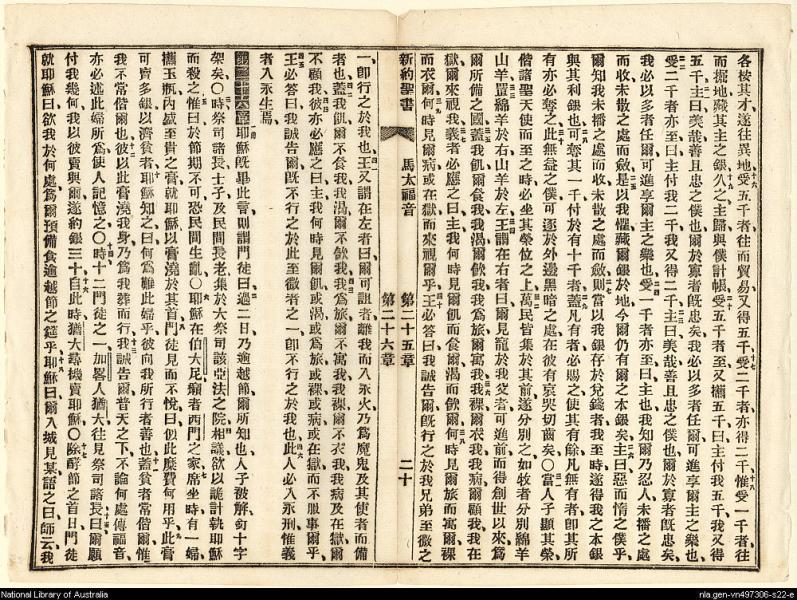 各按其才遂往異地受五千者往而貿易又得五千受二千者亦得二千惟受一千者往
而掘地藏其主之銀久之主歸與僕計帳受五千者至又攜五千曰主付我五千我又得
五千主曰美哉善且忠之僕也爾於寡者既忠我必以多者任爾可進享爾主之樂也
受二千者亦至曰主付我二千我又得二千主曰美哉善且忠之僕也爾於寡者既忠矣
我必以多者任爾可進享爾主之樂也受一千者亦至曰主也我知爾乃忍人未播之處
而收未散之處而斂是以我懼藏爾銀於地今爾仍有爾之本銀矣主曰惡而惰之僕乎
爾知我未播之處而收未散之處而斂則當以我銀存於兌錢者我至時遂得我之本銀
與其利銀也可奪其一千付於有十千者蓋凡有者必賜之使其有餘凡無有者卽其所
有亦必奪之此無益之僕可逐於外邊黑暗之處在彼有哀哭切齒矣〇當人子顯其榮
偕諸聖天使而至之時必坐其榮位之上萬民皆集於其前遂分別之如牧者分別綿羊
山羊置綿羊於右山羊於左王謂在右者曰爾見寵於我父者可進前而得創世以來爲
爾所備之國蓋我飢爾食我我渴爾飲我我爲旅爾寓我我裸爾衣我我病爾顧我我在
獄爾來視我義者必應之曰主我何時見爾飢而食爾渴而飲爾何時見爾旅而寓爾裸
而衣爾何時見爾病或在獄而來視爾乎王必答曰我誠告爾既行之於我兄弟至微之
新約聖書 馬太福音 第二十五章 第二十六章 二十
一卽行之於我也王又謂在左者曰爾可詛者離我而入永火乃爲魔鬼及其使者而備
者也蓋我飢爾不食我我渴爾不飲我我爲旅爾不寓我我裸爾不衣我我病及在獄爾
不顧我彼亦必應之曰主我何時見爾飢或渴或爲旅或裸或病或在獄而不服事爾乎
王必答曰我誠告爾既不行之於此至微者之一卽不行之於我也此人必入永刑惟義
者入永生焉
第二十六章耶穌既畢此言則謂門徒曰過二日乃逾越節爾所知也人子被解釘十字
架矣〇時祭司諸長士子及民間長老集於大祭司該亞法之院相議欲以詭計執耶穌
而殺之惟曰於節期不可恐民間生亂〇耶穌在伯大尼癩者西門之家席坐時有一婦
攜玉瓶內盛至貴之膏就耶穌以膏澆於其首門徒見而不悅曰似此糜費何用乎此膏
可賣多銀以濟貧者耶穌知之曰何爲難此婦乎彼向我所行者善也蓋貧者常偕爾惟
我不常偕爾也彼以此膏澆我身乃爲我葬而行我誠告爾普天之下不論何處傳福音
亦必述此婦所爲使人記憶之〇時十二門徒之一加畧人猶大往見祭司諸長曰爾願
付我幾何我以彼賣與爾遂約銀三十自此時猶大尋機賣耶穌〇除酵節之首日門徒
就耶穌曰欲我於何處爲爾預備食逾越節之筵乎耶穌曰爾入城見某語之曰師云我
National Library of Australia
nla.gen-vn497306-s22-e